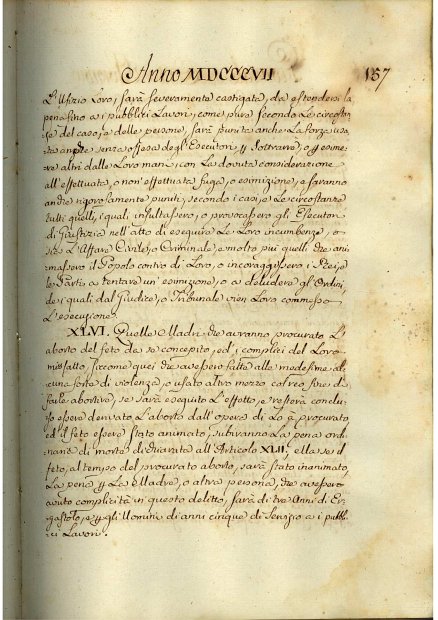 Anno MDCCCVII 137
L'Ufizio Loro, sarà severamente castigata, da estendersi la
pena sino a i pubblici Lavori, come pure secondo Le circostan
ze del caso, e delle persone, sarà punita anche La forza usa
ta anche senza offesa degl'Esecutori, p sottrarre, o p esime
re altri dalle Loro mani, con La dovuta considerazione
all'effettuata, o non effettuata fuga, o esimizione, e saranno
anche rigorosamente puniti, secondo i casi, e Le circostanze
tutti quelli, i quali insultassero, o provocassero gli Esecutori
di Giustizia nell'atto di eseguire Le Loro incumbenze, o
sia L'Affare Civile, o Criminale, e molto più quelli che ani
massero il Popolo contro di Loro, o incoraggissero i
Le Parti a tentare un'esimizione, o a deludere gl'Ordini
de i quali dal Giudice, o Tribunale vien Loro commesso
L'esecuzione.
XLVI. Quelle Madri che avranno procurato L'
aborto del feto da se concepito, ed i complici del Loro
misfatto, siccome quei che avessero fatta alle medesime al
cuna sorte di violenza, o usato altro mezzo col reo fine di
farle abortire, se sarà eseguito L'effetto, e resterà conclu
so essere derivato L'aborto dall'opera di Lo à procurato
ed il feto essere stato animato, subiranno La pena ordi
naria di morte dichiarata all'Articolo XLII, e se il
feto, al tempo del procurato aborto, sarà stato inanimato,
La pena p La Madre, o altra persona, che avessero
avuto complicità in questo delitto, sarà di tre Anni di Er
gastolo, e p gli Uomini di anni cinque di Servizio a i pubb
lici Lavori.